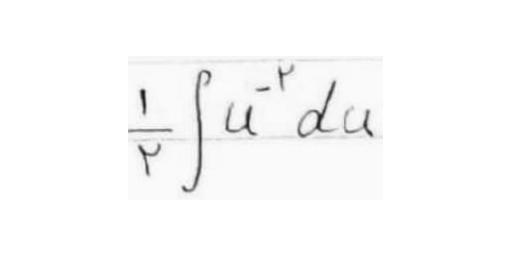 \frac{۱}{۲} \int u^{-۲} du